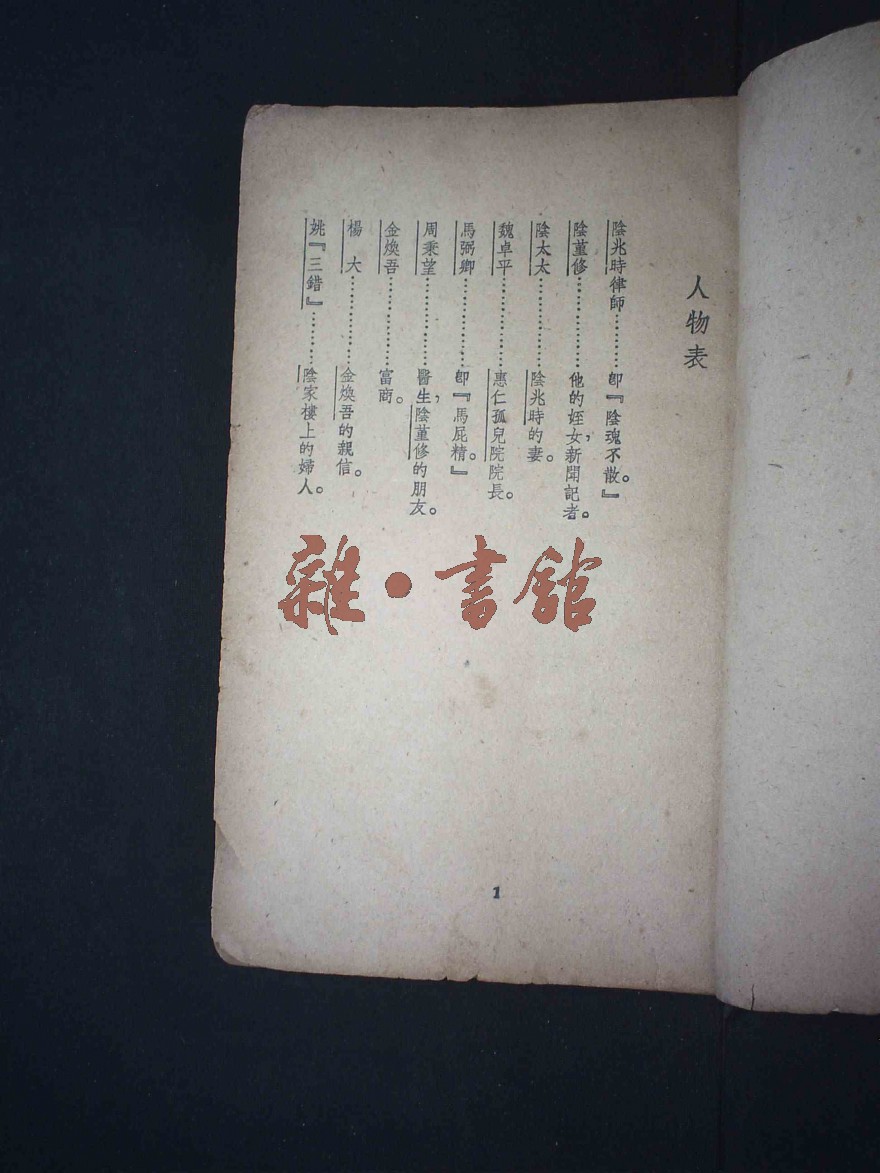 人物表
陰兆時律師…………即『陰魂不散。』
陰堇修………………他的姪女，新聞記者。
陰太太………………陰兆時的妻。
魏卓平………………惠仁孤兒院院長。
馬弼卿………………即『馬屁精。』
周秉望………………醫生，陰堇修的朋友。
金煥吾………………富商。
楊　大………………金煥吾的親信。
姚『三錯』…………陰家樓上的婦人。
雜·書館
1